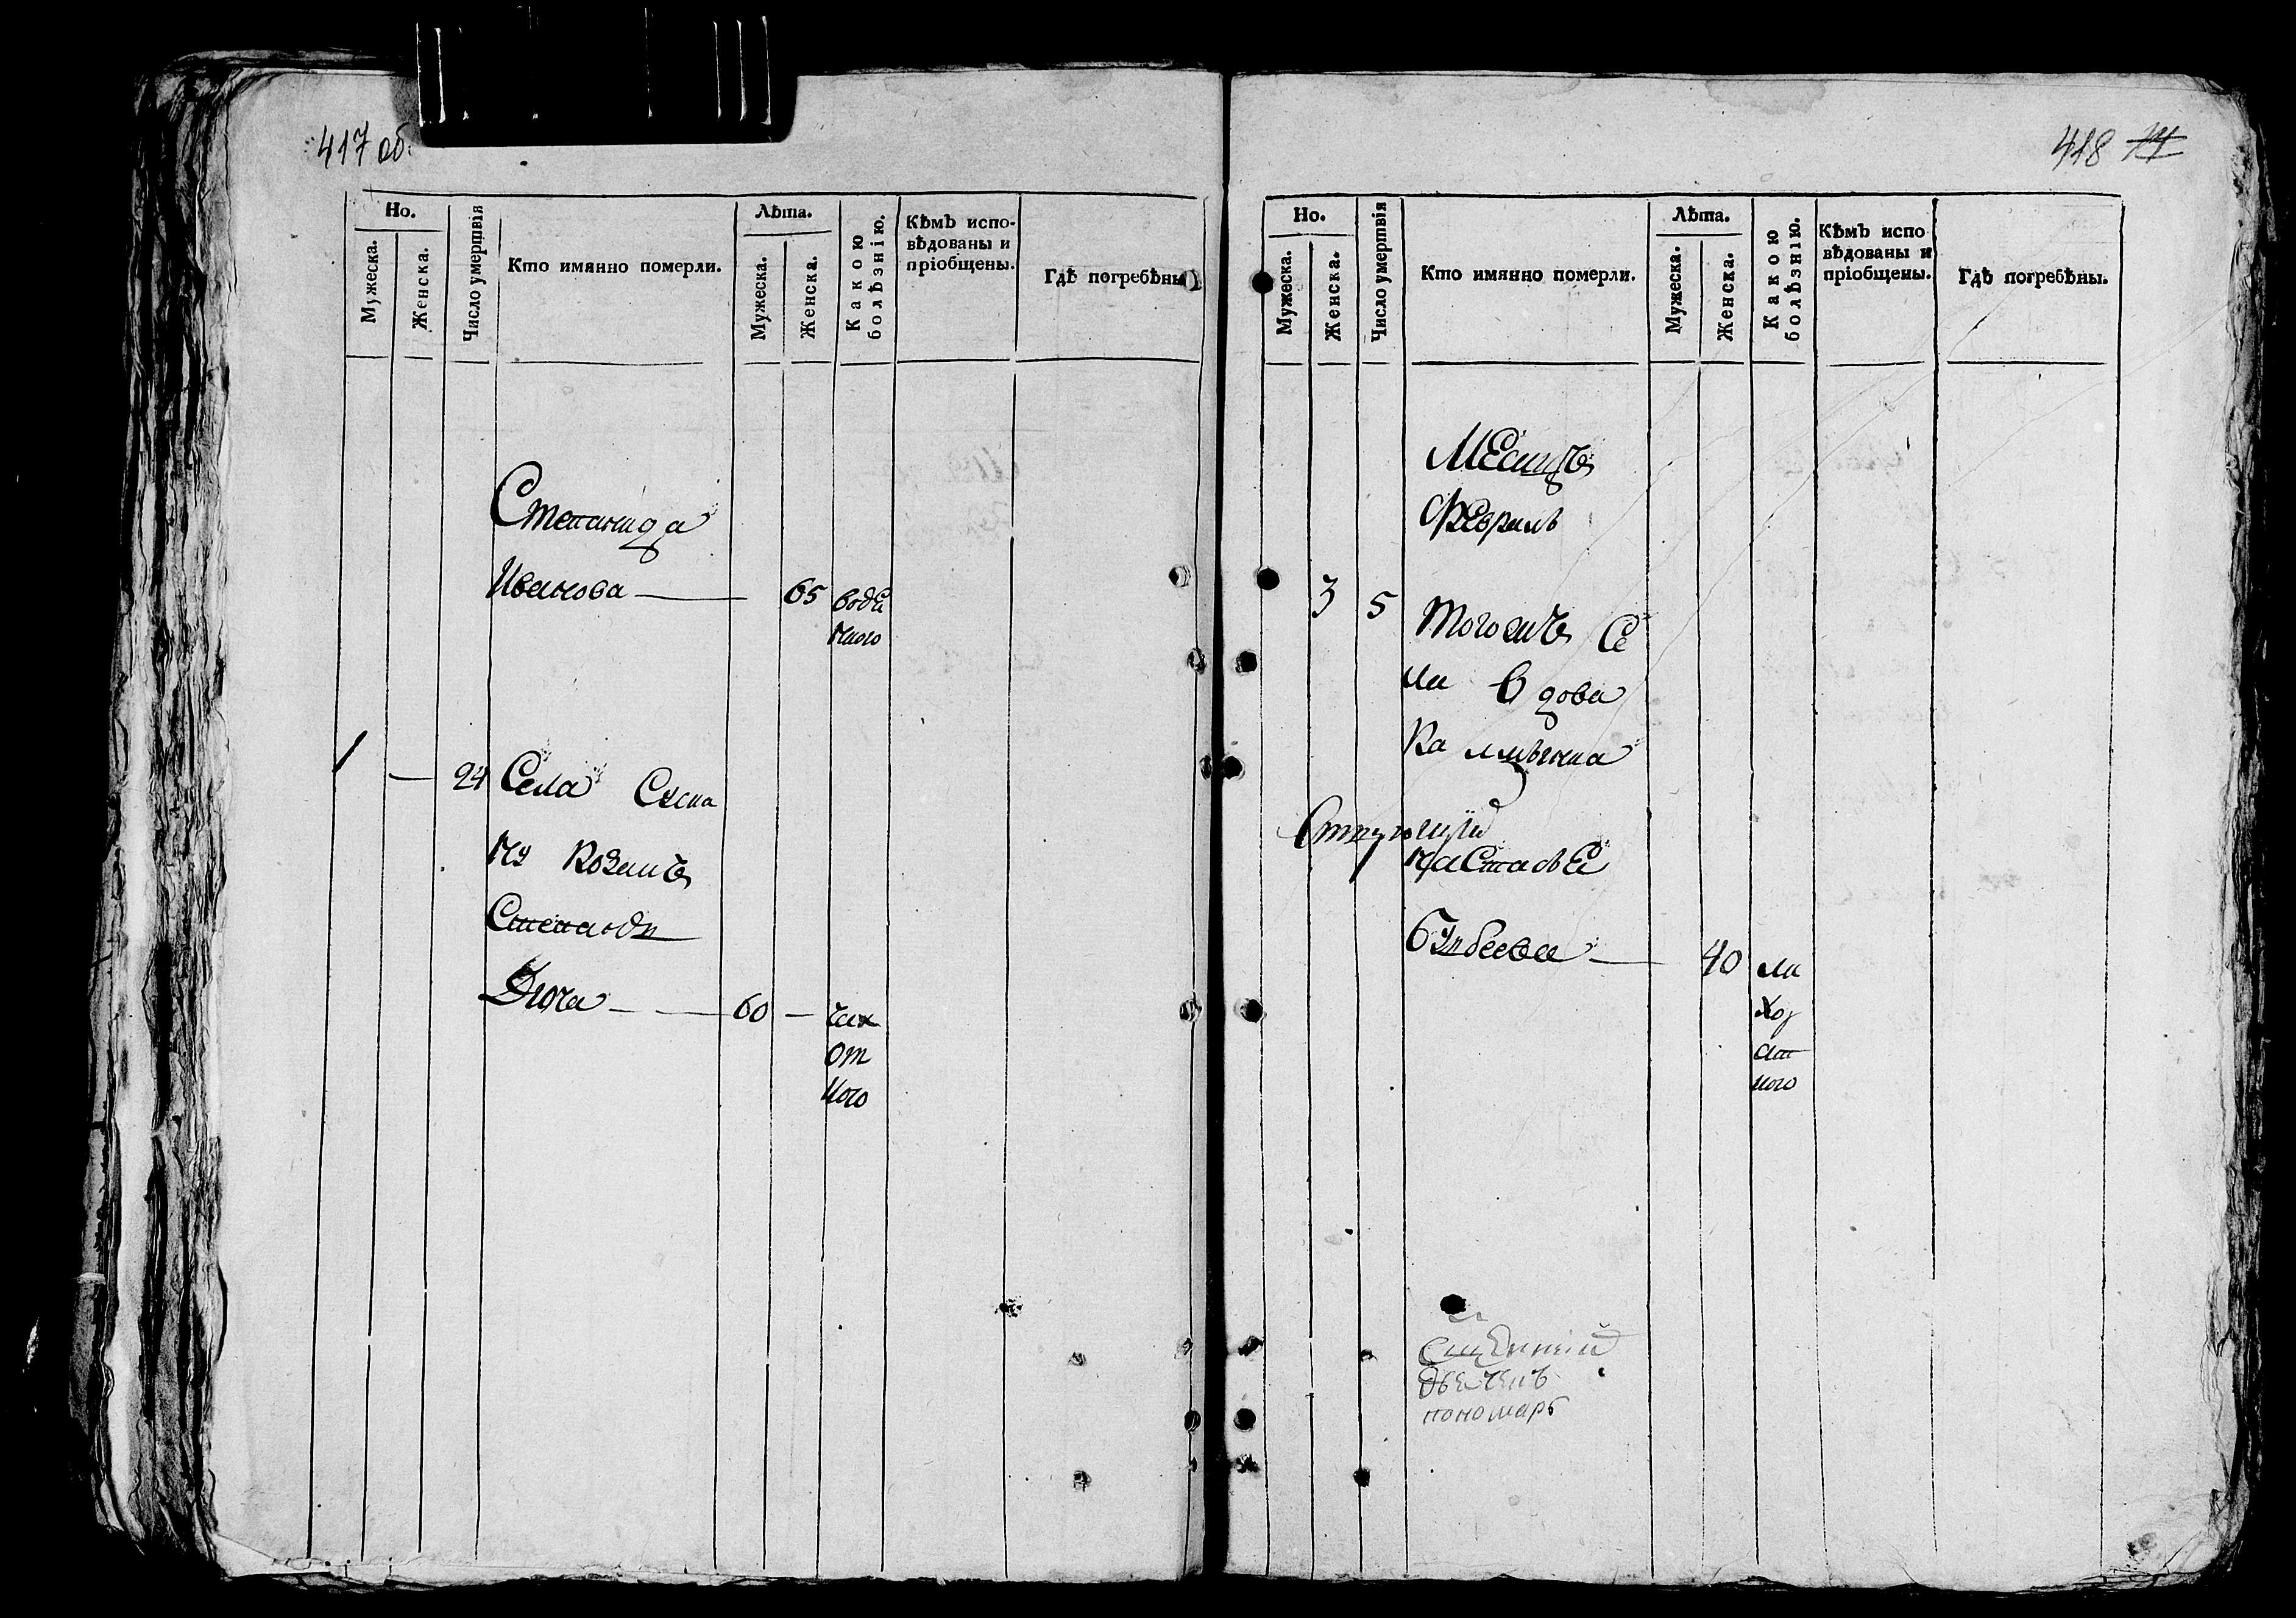 417 об.
Но.
Мужеска.
Женска.
Число умертвія
Кто имянно померли.
Лѣта.
Мужеска.
Женска.
Какою
болѣзнію.
Кѣмъ испо-
вѣдованы и
пріобщены.
Гдѣ погребѣны
Степанида
Иванова 65 водя
ного
1 — 24 Села
Козакъ
Степанъ
Дюча — 60 — чих
от
ного
418
Но.
Мужеска.
Женска.
Число умертвія
Кто имянно померли.
Лѣта.
Мужеска.
Женска.
Какою
болѣзнію.
Кѣмъ испо
вѣдованы и
пріобщены.
Гдѣ погребѣны.
Месяцъ
Февраль
3 5 Тогожъ Се
ла Вдова
Ка лмычка
40 ли
хор
ат
ного
пономарь